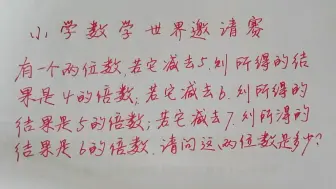 小学数学世界邀请赛
有一个两位数,若它减去5.则所得的结
果是4的倍数;若它减去6.则所得的
结果是5的倍数;若它减去7.则所得的
结果是6的倍数.请问这个两位数是多少?